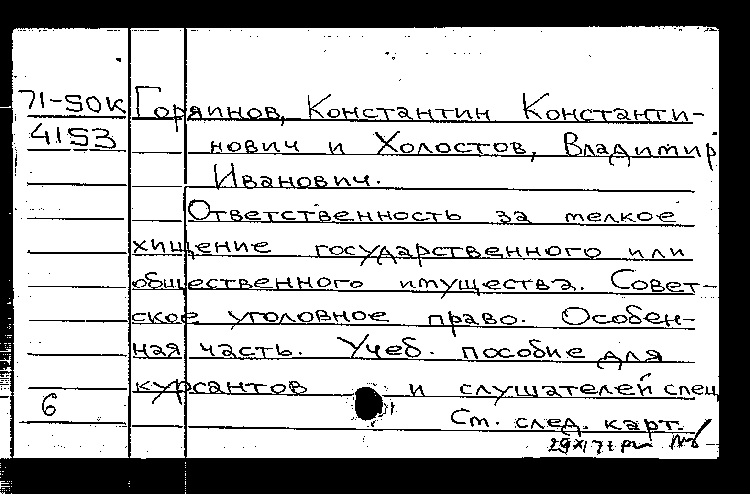 71-50К Горяинов, Константин Константи-
4153 нович и Холостов, Владимир
Иванович.
Ответственность за мелкое
хищение государственного или
общественного имущества. Совет-
ское уголовное право. Особен-
ная часть. Учеб. пособие для
курсантов и слушателей спец
6 Ст. след. карт.